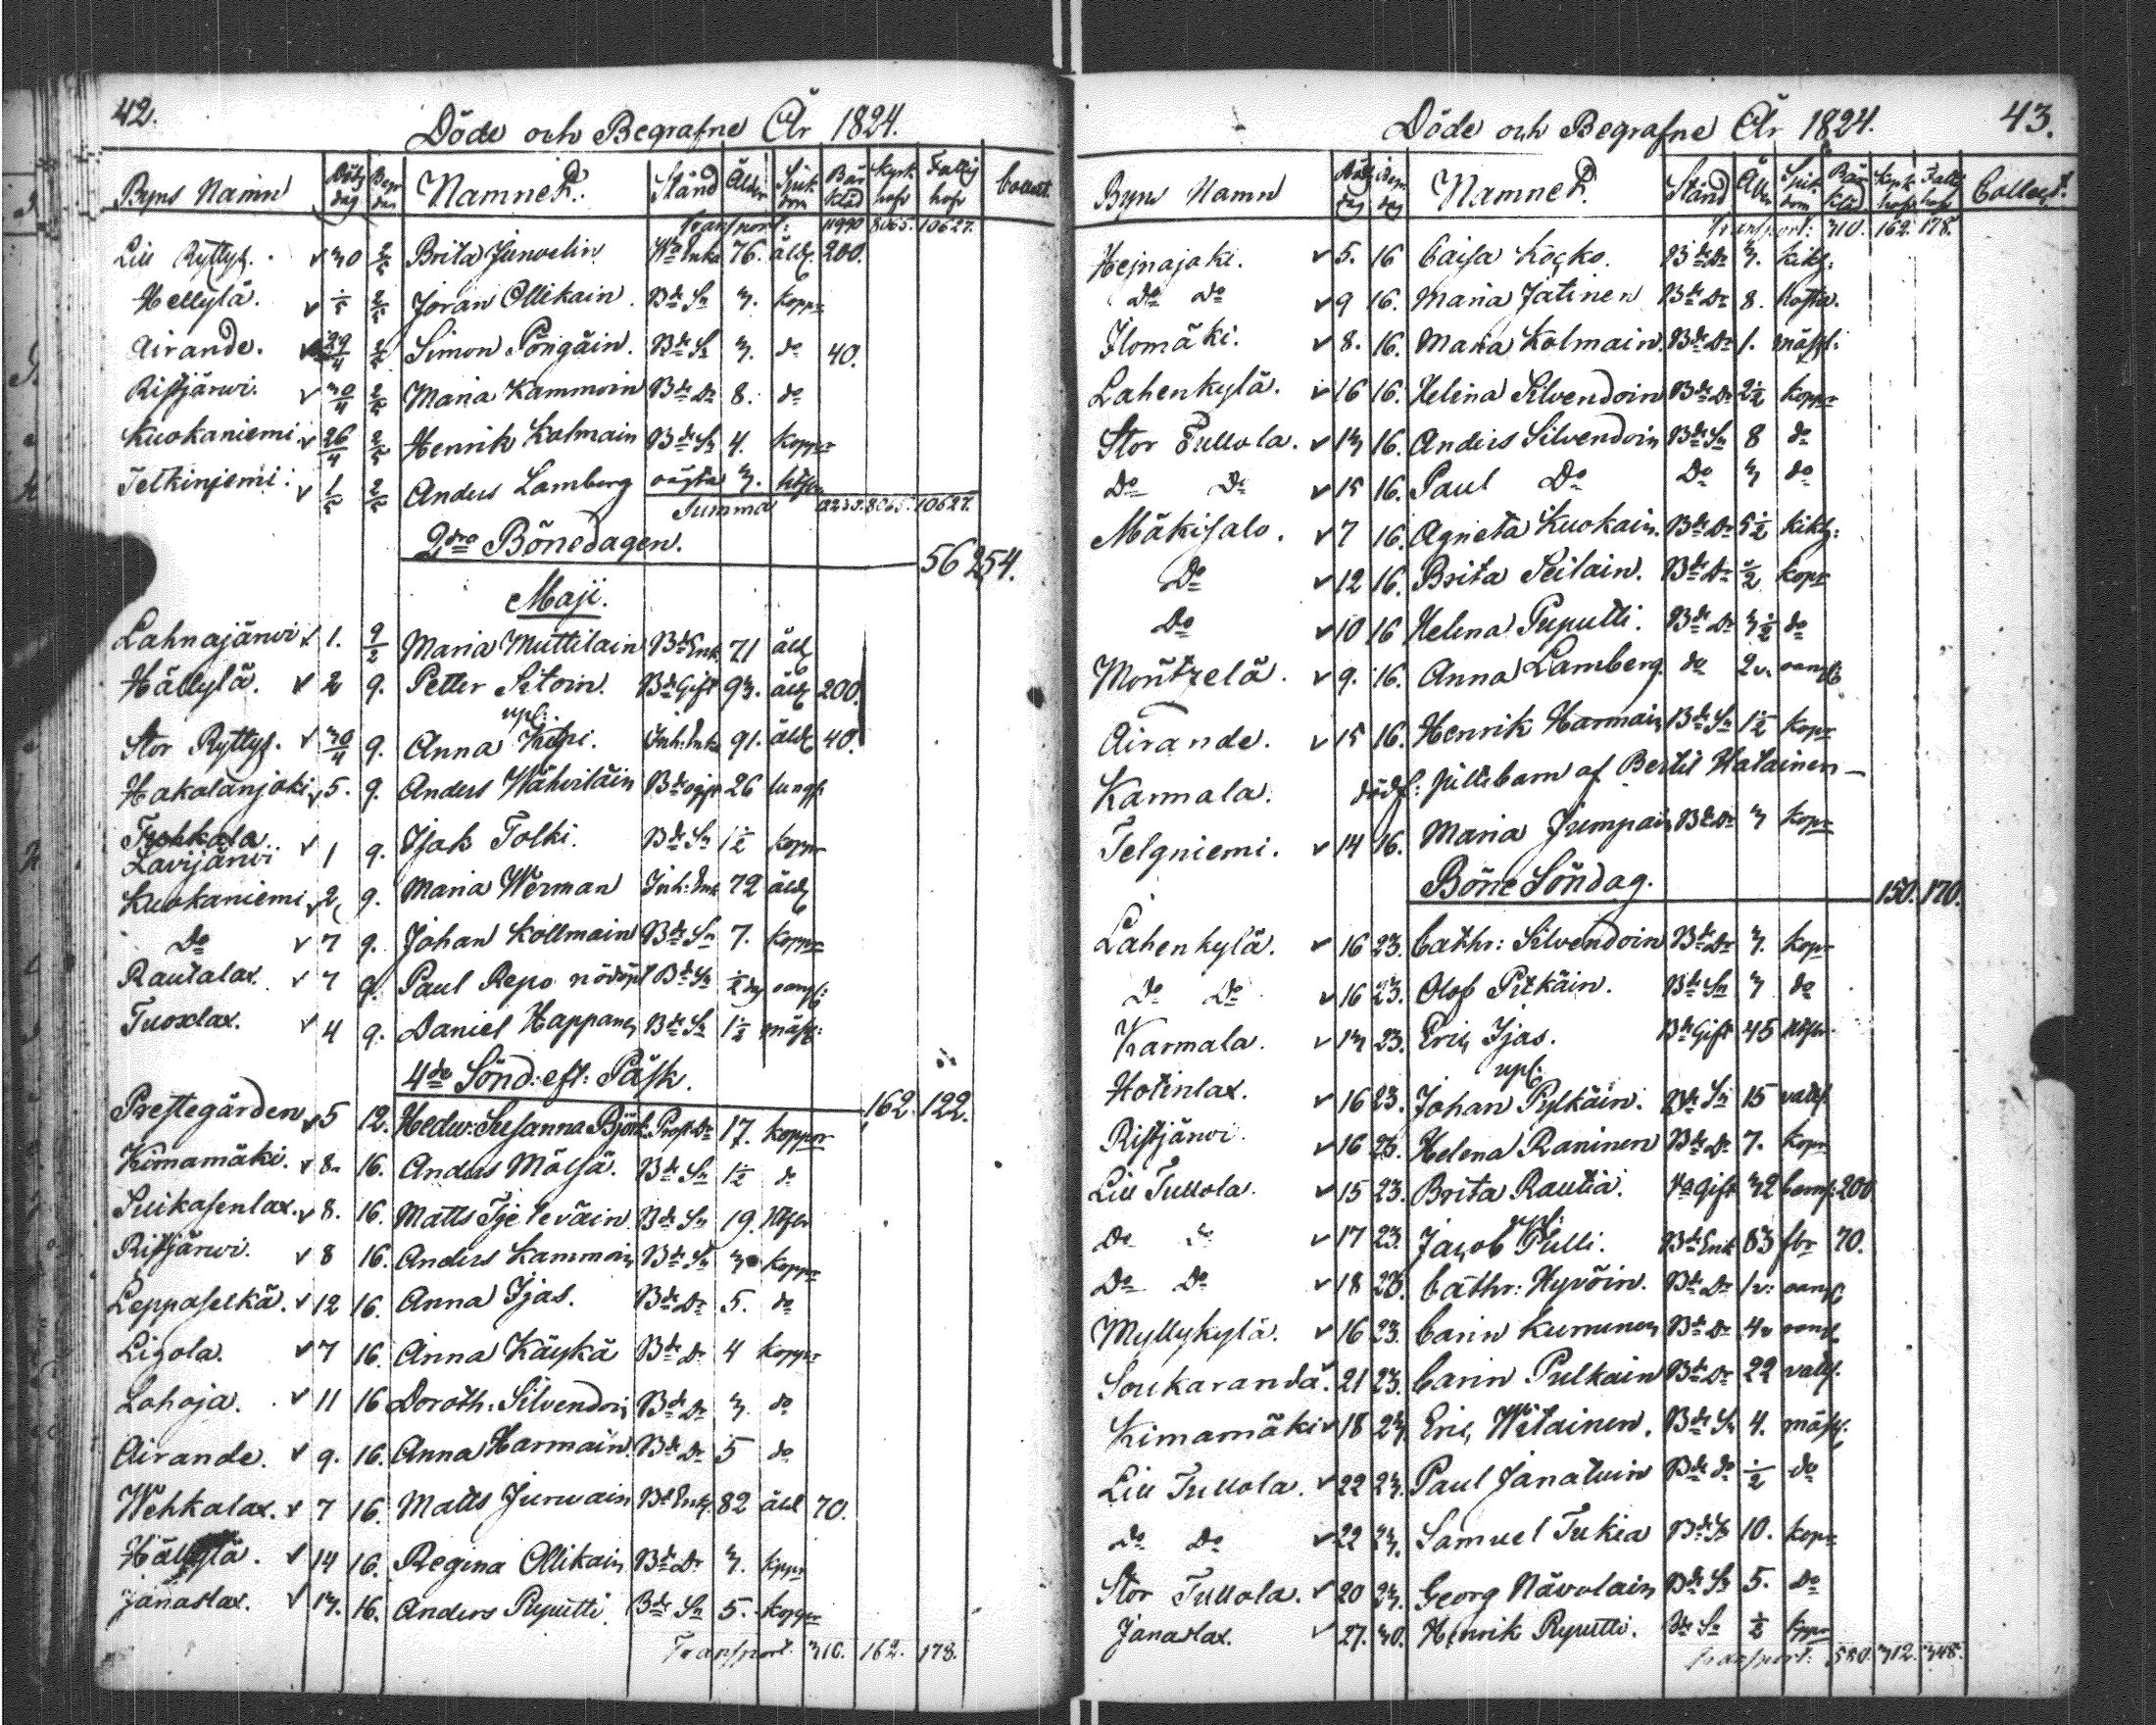 42.
Döde och Begrafne År 1824.
Byns Namn Döds dag Begr dag Namnet. Stånd Ålder Sjuk dom Bår kläd Kyrk hofv Fattig hofv Collect
Transport: 11990 8065. 10627.
Lill Ryttyl. 30 2/5 Brita Junvelin Enka 76. åld. 200.
Hellylä. 1/5 2/5 Jöran Ollikain. Bde Sn 3. koppor
Airande. 29/4 2/5 Simon Pöngäin. Bde Sn 3. do 40.
Ristjärwi. 30/4 2/5 Maria Kammoin Bde Dr 8. do
Kuokaniemi 26/4 2/5 Henrik Kolmain Bde Sn 4. koppor
Telkinjemi. 1/5 2/5 Anders Lamberg 3.
Summa 8065. 10627.
2dra Bönedagen.
56254.
Maji.
Lahnajärwi 1. 9/2 Maria Muttilain Bde Enk. 71 åld
Hällylä. 2 9. Petter Sitoin. Bde Gift 93. åld 200.
upl:
Stor Ryttyl. 30/4 9. Anna Kitpi. Inh: Enka 91. åld 40.
Hakalanjoki 5. 9. Anders Wähviläin Bde ogift 26 lungs.
Tuhkala
Lavijärwi 1 9. Isak Tolki. Bde Sn 1½ koppor
Kuokaniemi 2 9. Maria Werman Inh: Enk 72 åld
Do 7 9. Johan Kollmain Bde Sn 7. koppor
Rautalax. 7 9. Paul Repo nödöpt Bde Sn ½ dag oangif:
Tuoxlax. 4 9. Daniel Happanen Bde Sn 1½ mässl:
4de Sönd: eft: Påsk.
162. 122.
Prestegården 5 12. Hedw: Susanna Björk. Prost Dr 17. koppor
Kimamäki. 8. 16. Anders Mölsä. Bde Sn 1½ do
Suikasenlax. 8. 16. Matts Tjeleväin Bde Sn 19.
Ristjärwi. 8 16. Anders Kammoin Bde Sn 3 koppor
Leppäselkä. 12 16. Anna Ijas. Bde Dr 5. do
Ligola. 7 16. Anna Käykä Bde Dr 4 koppor
Lohoja. 11 16 Doroth: Silvendoin Bde Dr 3. do
Airande. 9. 16. Anna Harmain Bde Dr 5 do
Wehkalax. 7 16. Matts Jurwain Bde Enk. 82 åld 70.
Hällylä. 14 16. Regina Ollikain Bde Dr 3. koppor
Janaslax. 13. 16. Anders Puputti Bde Sn 5. koppor
Transport. 310. 162. 178.
43.
Döde och Begrafne År 1824.
Byns Namn Döds dag Begr. dag Namnet. Stånd Ålder Sjuk dom Bår kläd Kyrk hofv Fattig hofv Collect.
Transport: 310. 162. 178.
Hejnajoki. 5. 16 Caisa Kocko. Bde Dr 3. kikh:
Do Do 9 16. Maria Jatinen Bde Dr 8. hosta.
Ilomäki. 8. 16. Maria Kolmain Bde Dr 1. mässl:
Lahenkylä. 16 16. Helena Silvendoin Bde Dr 2½ koppor
Stor Tullola. 13 16. Anders Silvendoin Bde Sn 8 do
Do Do 15 16. Paul Do Do 3 do
Mäkisalo. 7 16. Agneta Kuokain. Bde Dr 5½ kikh:
Do 12 16. Brita Seilain. Bde Dr ½ kopr
Do 10 16 Helena Puputti. Bde Dr 3½ do
Möntzelä. 9. 16. Anna Lamberg. do 2v. oangif
Airande. 15 16. Henrik Harmain Bde Sn 1½ kopr
Karmala. dödf: Jillebarn af Bertil Hatainen —
Telgniemi. 14 16. Maria Jumpain Bde Dr 3 kopr
Böne Söndag.
150. 170.
Lahenkylä. 16 23. Cathr: Silvendoin Bde Dr 3. kopr
Do Do 16 23. Olof Pitkäin. Bde Sn 3 do
Karmala. 13 23. Eric Ijas. Bde Gift 45
upl:
Hotinlax. 16 23. Johan Pylkäin. Bde Sn 15
Ristjärwi. 16 23. Helena Raninen Bde Dr 7. kopr
Lill Tullola. 15 23. Brita Rautia. Gift 32 barns: 200
upl:
Do Do 17 23. Jacob Pulli. Bde Enk 83 70.
Do Do 18 23. Cathr: Hyvöin. Bde Dr 1v: oangif
Myllykylä. 16 23. Carin Kurunen Bde Dr 4v oangif
Soukaranda. 21 23. Carin Pulkain Bde Dr 22
Kimamäki 18 23. Eric Witainen. Bde Sn 4. mässl.
Lill Tullola. 22 23. Paul Janatuin Bde do ½ do
Do Do 22 23. Samuel Tukia Bde Sn 10. kopr
Stor Tullola. 20 23. Georg Nävolain Bde Sn 5. Do
Janaslax. 27. 30. Henrik Puputti. Bde Sn ½ kopr
Transport: 580. 312. 348.